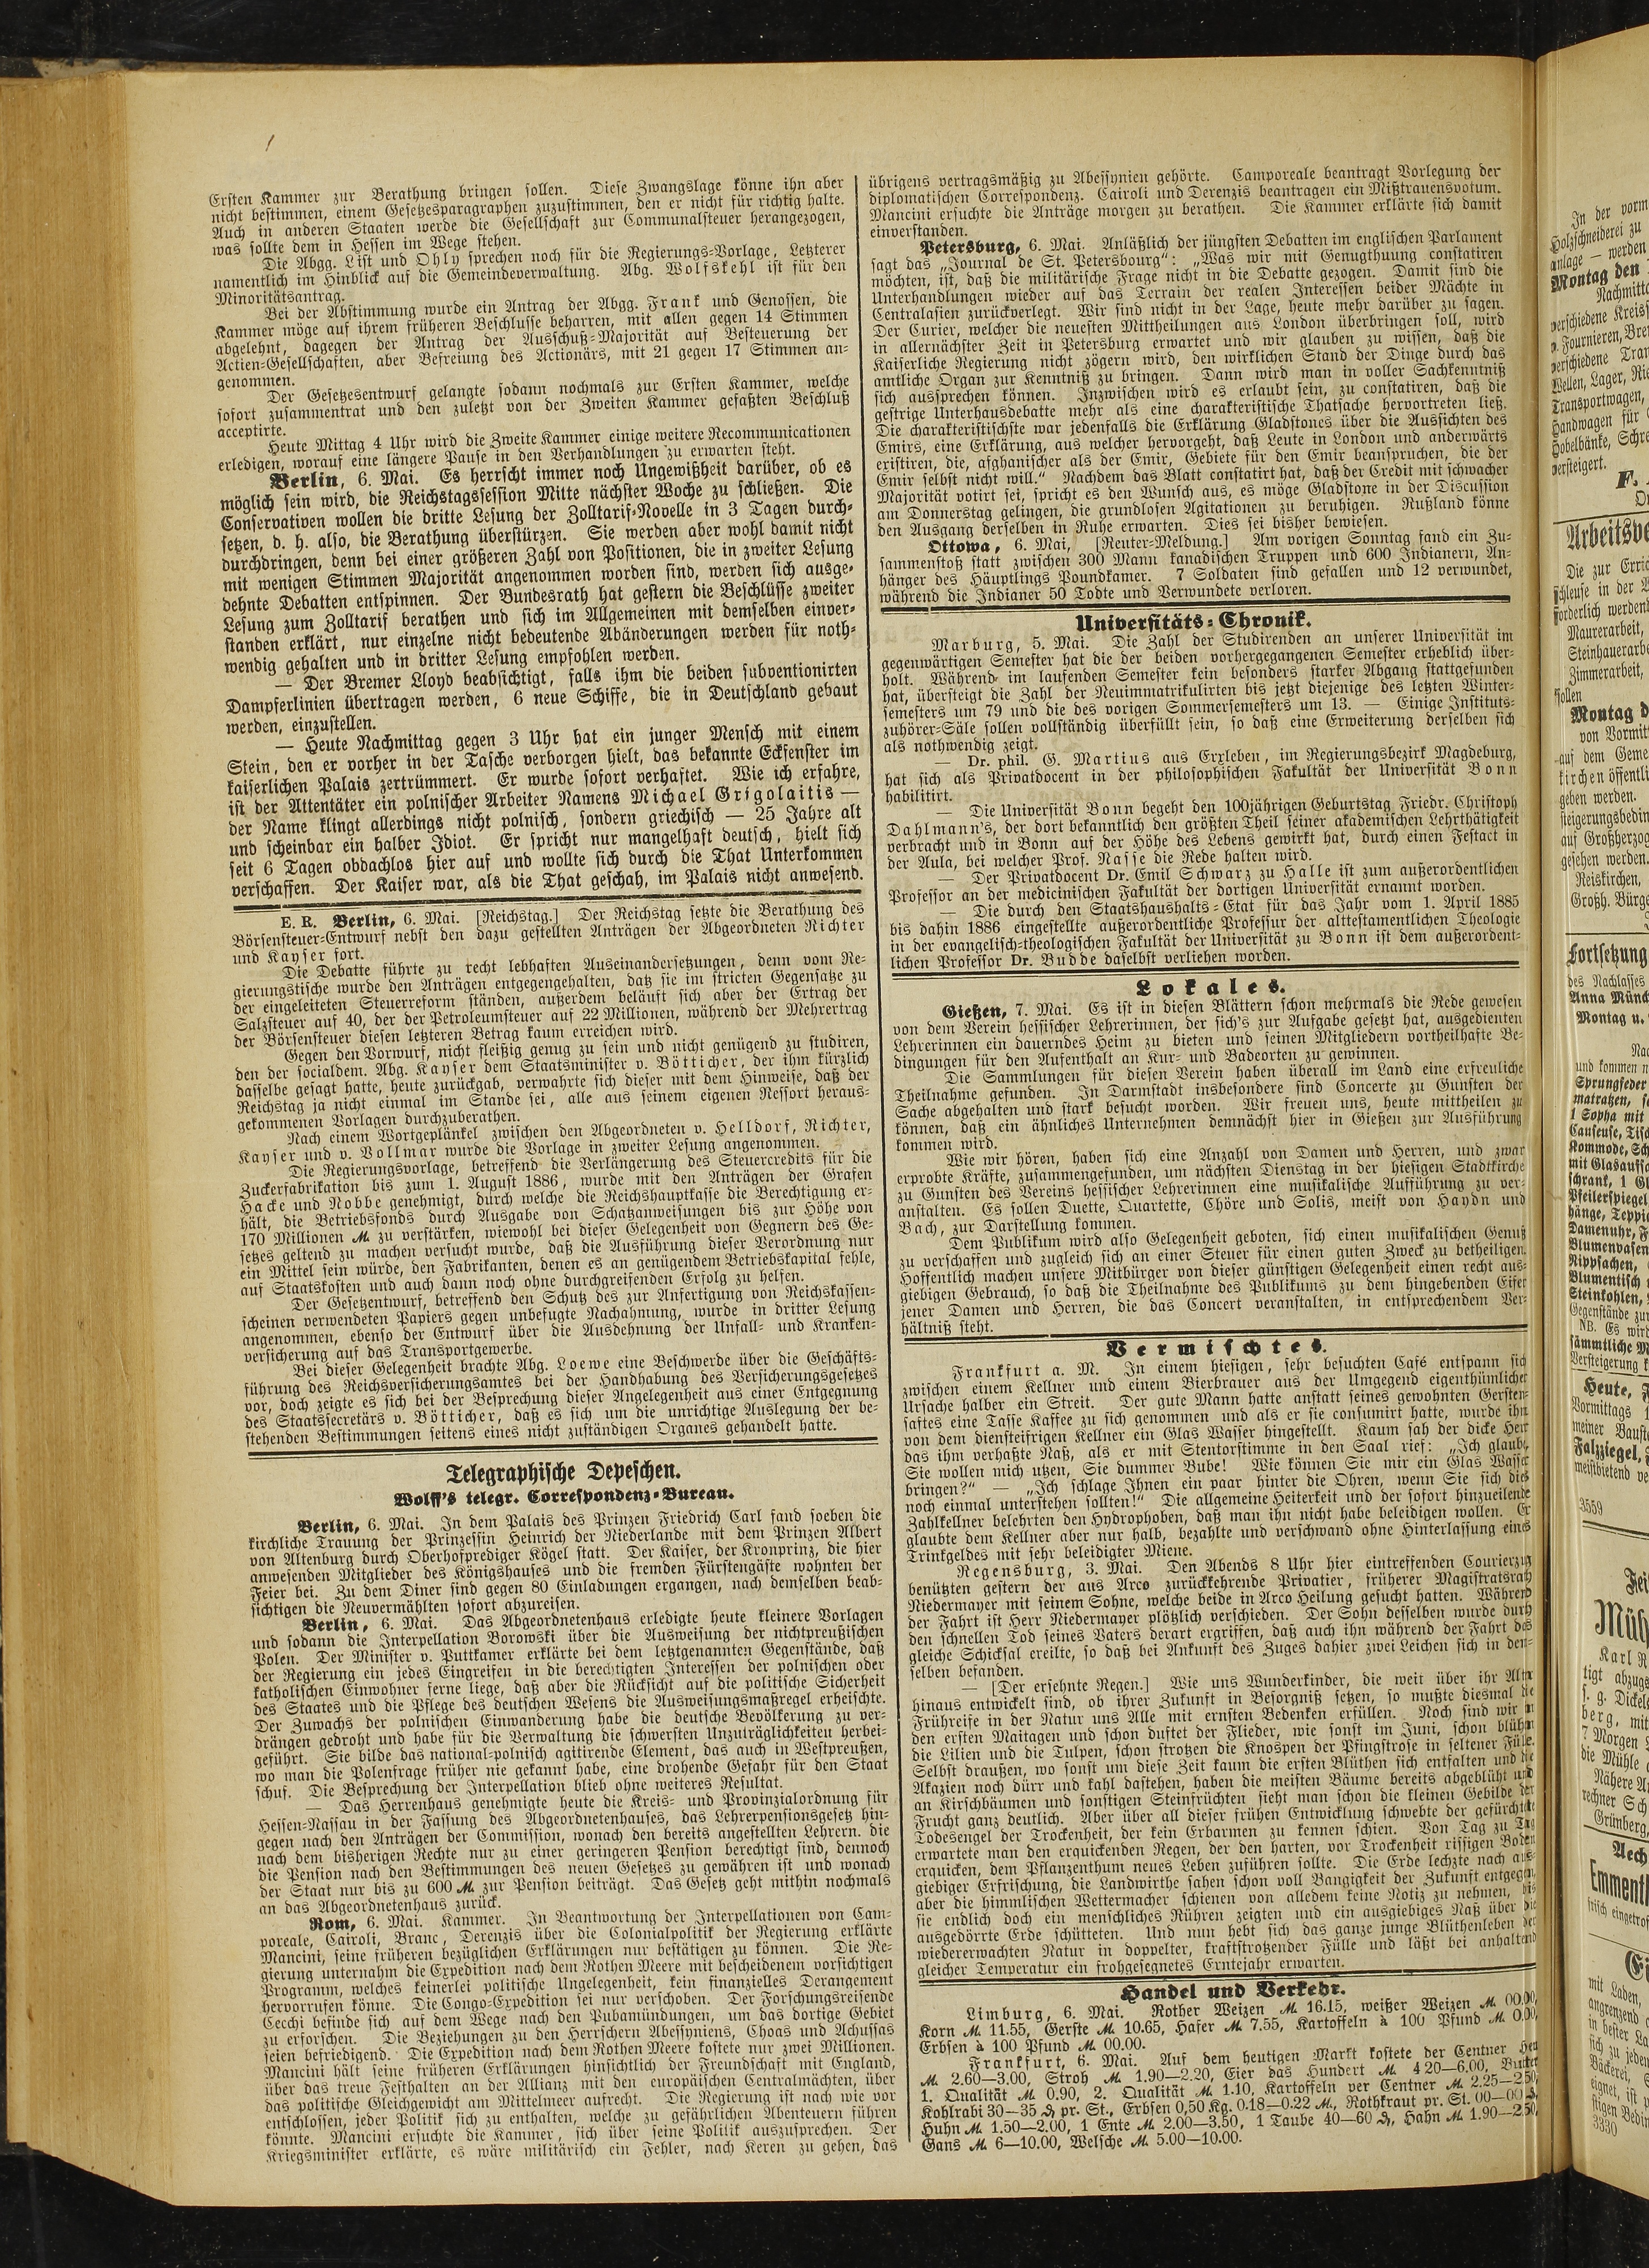 Ersten Kammer zur Berathung bringen sollen. Diese Zwangslage könne ihn aber
nicht bestimmen, einem Gesetzesparagraphen zuzustimmen, den er nicht für richtig halte.
Auch in anderen Staaten werde die Gesellschaft zur Communalsteuer herangezogen,
was sollte dem in Hessen im Wege stehen.
Die Abgg. List und Ohly sprechen noch für die Regierungs-Vorlage, Letzterer
namentlich im Hinblick auf die Gemeindeverwaltung. Abg. Wolfskehl ist für den
Minoritätsantrag.
Bei der Abstimmung wurde ein Antrag der Abgg. Frank und Genossen, die
Kammer möge auf ihrem früheren Beschlusse beharren, mit allen gegen 14 Stimmen
abgelehnt, dagegen der Antrag der Ausschuß-Majorität auf Besteuerung der
Actien-Gesellschaften, aber Befreiung des Actionärs, mit 21 gegen 17 Stimmen an-
genommen.
Der Gesetzesentwurf gelangte sodann nochmals zur Ersten Kammer, welche
sofort zusammentrat und den zuletzt von der Zweiten Kammer gefaßten Beschluß
acceptirte.
Heute Mittag 4 Uhr wird die Zweite Kammer einige weitere Recommunicationen
erledigen, worauf eine längere Pause in den Verhandlungen zu erwarten steht.
Berlin, 6. Mai. Es herrscht immer noch Ungewißheit darüber, ob es
möglich sein wird, die Reichstagssession Mitte nächster Woche zu schließen. Die
Conservativen wollen die dritte Lesung der Zolltarif-Novelle in 3 Tagen durch-
setzen, d. h. also, die Berathung überstürzen. Sie werden aber wohl damit nicht
durchdringen, denn bei einer größeren Zahl von Positionen, die in zweiter Lesung
mit wenigen Stimmen Majorität angenommen worden sind, werden sich ausge-
dehnte Debatten entspinnen. Der Bundesrath hat gestern die Beschlüsse zweiter
Lesung zum Zolltarif berathen und sich im Allgemeinen mit demselben einver-
standen erklärt, nur einzelne nicht bedeutende Abänderungen werden für noth-
wendig gehalten und in dritter Lesung empfohlen werden.
— Der Bremer Lloyd beabsichtigt, falls ihm die beiden subventionirten
Dampferlinien übertragen werden, 6 neue Schiffe, die in Deutschland gebaut
werden, einzustellen.
— Heute Nachmittag gegen 3 Uhr hat ein junger Mensch mit einem
Stein, den er vorher in der Tasche verborgen hielt, das bekannte Eckfenster im
kaiserlichen Palais zertrümmert. Er wurde sofort verhaftet. Wie ich erfahre,
ist der Attentäter ein polnischer Arbeiter Namens Michael Grigolaitis —
der Name klingt allerdings nicht polnisch, sondern griechisch — 25 Jahre alt
und scheinbar ein halber Idiot. Er spricht nur mangelhaft deutsch, hielt sich
seit 6 Tagen obdachlos hier auf und wollte sich durch die That Unterkommen
verschaffen. Der Kaiser war, als die That geschah, im Palais nicht anwesend.
E. R. Berlin, 6. Mai. [Reichstag.] Der Reichstag setzte die Berathung des
Börsensteuer-Entwurf nebst den dazu gestellten Anträgen der Abgeordneten Richter
und Kayser fort.
Die Debatte führte zu recht lebhaften Auseinandersetzungen, denn vom Re-
gierungstische wurde den Anträgen entgegengehalten, daß sie im stricten Gegensatze zu
der eingeleiteten Steuerreform ständen, außerdem beläuft sich aber der Ertrag der
Salzsteuer auf 40, der der Petroleumsteuer auf 22 Millionen, während der Mehrertrag
der Börsensteuer diesen letzteren Betrag kaum erreichen wird.
Gegen den Vorwurf, nicht fleißig genug zu sein und nicht genügend zu studiren,
den der socialdem. Abg. Kayser dem Staatsminister v. Bötticher, der ihm kürzlich
dasselbe gesagt hatte, heute zurückgab, verwahrte sich dieser mit dem Hinweise, daß der
Reichstag ja nicht einmal im Stande sei, alle aus seinem eigenen Ressort heraus-
gekommenen Vorlagen durchzuberathen.
Nach einem Wortgeplänkel zwischen den Abgeordneten v. Helldorf, Richter,
Kayser und v. Vollmar wurde die Vorlage in zweiter Lesung angenommen.
Die Regierungsvorlage, betreffend die Verlängerung des Steuercredits für die
Zuckerfabrikation bis zum 1. August 1886, wurde mit den Anträgen der Grafen
Hacke und Nobbe genehmigt, durch welche die Reichshauptkasse die Berechtigung er-
hält, die Betriebsfonds durch Ausgabe von Schatzanweisungen bis zur Höhe von
170 Millionen M. zu verstärken, wiewohl bei dieser Gelegenheit von Gegnern des Ge-
setzes geltend zu machen versucht wurde, daß die Ausführung dieser Verordnung nur
ein Mittel sein würde, den Fabrikanten, denen es an genügendem Betriebskapital fehle,
auf Staatskosten und auch dann noch ohne durchgreifenden Erfolg zu helfen.
Der Gesetzentwurf, betreffend den Schutz des zur Anfertigung von Reichskassen-
scheinen verwendeten Papiers gegen unbefugte Nachahmung, wurde in dritter Lesung
angenommen, ebenso der Entwurf über die Ausdehnung der Unfall- und Kranken-
versicherung auf das Transportgewerbe.
Bei dieser Gelegenheit brachte Abg. Loewe eine Beschwerde über die Geschäfts-
führung des Reichsversicherungsamtes bei der Handhabung des Versicherungsgesetzes
vor, doch zeigte es sich bei der Besprechung dieser Angelegenheit aus einer Entgegnung
des Staatssecretärs v. Bötticher, daß es sich um die unrichtige Auslegung der be-
stehenden Bestimmungen seitens eines nicht zuständigen Organes gehandelt hatte.
Telegraphische Depeschen.
Wolff's telegr. Correspondenz-Bureau.
Berlin, 6. Mai. In dem Palais des Prinzen Friedrich Carl fand soeben die
kirchliche Trauung der Prinzessin Heinrich der Niederlande mit dem Prinzen Albert
von Altenburg durch Oberhofprediger Kögel statt. Der Kaiser, der Kronprinz, die hier
anwesenden Mitglieder des Königshauses und die fremden Fürstengäste wohnten der
Feier bei. Zu dem Diner sind gegen 80 Einladungen ergangen, nach demselben beab-
sichtigen die Neuvermählten sofort abzureisen.
Berlin, 6. Mai. Das Abgeordnetenhaus erledigte heute kleinere Vorlagen
und sodann die Interpellation Borowski über die Ausweisung der nichtpreußischen
Polen. Der Minister v. Puttkamer erklärte bei dem letztgenannten Gegenstände, daß
der Regierung ein jedes Eingreifen in die berechtigten Interessen der polnischen oder
katholischen Einwohner ferne liege, daß aber die Rücksicht auf die politische Sicherheit
des Staates und die Pflege des deutschen Wesens die Ausweisungsmaßregel erheischte.
Der Zuwachs der polnischen Einwanderung habe die deutsche Bevölkerung zu ver-
drängen gedroht und habe für die Verwaltung die schwersten Unzuträglichkeiten herbei-
geführt. Sie bilde das national-polnisch agitirende Element, das auch in Westpreußen,
wo man die Polenfrage früher nie gekannt habe, eine drohende Gefahr für den Staat
schuf. Die Besprechung der Interpellation blieb ohne weiteres Resultat.
— Das Herrenhaus genehmigte heute die Kreis- und Provinzialordnung für
Hessen-Nassau in der Fassung des Abgeordnetenhauses, das Lehrerpensionsgesetz hin-
gegen nach den Anträgen der Commission, wonach den bereits angestellten Lehrern. die
nach dem bisherigen Rechte nur zu einer geringeren Pension berechtigt sind, dennoch
die Pension nach den Bestimmungen des neuen Gesetzes zu gewähren ist und wonach
der Staat nur bis zu 600 M. zur Pension beiträgt. Das Gesetz geht mithin nochmals
an das Abgeordnetenhaus zurück.
Rom, 6. Mai. Kammer. In Beantwortung der Interpellationen von Cam-
poreale, Cairoli, Branc, Derenzis über die Colonialpolitik der Regierung erklärte
Mancini, seine früheren bezüglichen Erklärungen nur bestätigen zu können. Die Re-
gierung unternahm die Expedition nach dem Rothen Meere mit bescheidenem vorsichtigen
Programm, welches keinerlei politische Ungelegenheit, kein finanzielles Derangement
hervorrufen könne. Die Congo-Expedition sei nur verschoben. Der Forschungsreisende
Cecchi befinde sich auf dem Wege nach den Pubamündungen, um das dortige Gebiet
zu erforschen. Die Beziehungen zu den Herrschern Abessyniens, Choas und Achussas
seien befriedigend. Die Expedition nach dem Rothen Meere kostete nur zwei Millionen.
Mancini hält seine früheren Erklärungen hinsichtlich der Freundschaft mit England,
über das treue Festhalten an der Allianz mit den europäischen Centralmächten, über
das politische Gleichgewicht am Mittelmeer aufrecht. Die Regierung ist nach wie vor
entschlossen, jeder Politik sich zu enthalten, welche zu gefährlichen Abenteuern führen
könnte. Mancini ersuchte die Kammer, sich über seine Politik auszusprechen. Der
Kriegsminister erklärte, es wäre militärisch ein Fehler, nach Keren zu gehen, das
übrigens vertragsmäßig zu Abessynien gehörte. Camporeale beantragt Vorlegung der
diplomatischen Correspondenz. Cairoli und Derenzis beantragen ein Mißtrauensvotum.
Mancini ersuchte die Anträge morgen zu berathen. Die Kammer erklärte sich damit
einverstanden.
Petersburg, 6. Mai. Anläßlich der jüngsten Debatten im englischen Parlament
sagt das „Journal de St. Petersbourg“: „Was wir mit Genugthuung constatiren
möchten, ist, daß die militärische Frage nicht in die Debatte gezogen. Damit sind die
Unterhandlungen wieder auf das Terrain der realen Interessen beider Mächte in
Centralasien zurückverlegt. Wir sind nicht in der Lage, heute mehr darüber zu sagen.
Der Curier, welcher die neuesten Mittheilungen aus London überbringen soll, wird
in allernächster Zeit in Petersburg erwartet und wir glauben zu wissen, daß die
Kaiserliche Regierung nicht zögern wird, den wirklichen Stand der Dinge durch das
amtliche Organ zur Kenntniß zu bringen. Dann wird man in voller Sachkenntniß
sich aussprechen können. Inzwischen wird es erlaubt sein, zu constatiren, daß die
gestrige Unterhausdebatte mehr als eine charakteristische Thatsache hervortreten ließ.
Die charakteristischste war jedenfalls die Erklärung Gladstones über die Aussichten des
Emirs, eine Erklärung, aus welcher hervorgeht, daß Leute in London und anderwärts
existiren, die, afghanischer als der Emir, Gebiete für den Emir beanspruchen, die der
Emir selbst nicht will.“ Nachdem das Blatt constatirt hat, daß der Credit mit schwacher
Majorität votirt sei, spricht es den Wunsch aus, es möge Gladstone in der Discussion
am Donnerstag gelingen, die grundlosen Agitationen zu beruhigen. Rußland könne
den Ausgang derselben in Ruhe erwarten. Dies sei bisher bewiesen.
Ottowa, 6. Mai, [Reuter-Meldung.] Am vorigen Sonntag fand ein Zu-
sammenstoß statt zwischen 300 Mann kanadischen Truppen und 600 Indianern, An-
hänger des Häuptlings Poundkamer. 7 Soldaten sind gefallen und 12 verwundet,
während die Indianer 50 Todte und Verwundete verloren.
Universitäts-Chronik.
Marburg, 5. Mai. Die Zahl der Studirenden an unserer Universität im
gegenwärtigen Semester hat die der beiden vorhergegangenen Semester erheblich über-
holt. Während im laufenden Semester kein besonders starker Abgang stattgefunden
hat, übersteigt die Zahl der Neuimmatrikulirten bis jetzt diejenige des letzten Winter-
semesters um 79 und die des vorigen Sommersemesters um 13. — Einige Instituts-
zuhörer-Säle sollen vollständig überfüllt sein, so daß eine Erweiterung derselben sich
als nothwendig zeigt.
— Dr. phil. G. Martius aus Erxleben, im Regierungsbezirk Magdeburg,
hat sich als Privatdocent in der philosophischen Fakultät der Universität Bonn
habilitirt.
— Die Universität Bonn begeht den 100jährigen Geburtstag Friedr. Christoph
Dahlmann's, der dort bekanntlich den größten Theil seiner akademischen Lehrthätigkeit
verbracht und in Bonn auf der Höhe des Lebens gewirkt hat, durch einen Festact in
der Aula, bei welcher Prof. Nasse die Rede halten wird.
— Der Privatdocent Dr. Emil Schwarz zu Halle ist zum außerordentlichen
Professor an der medicinischen Fakultät der dortigen Universität ernannt worden.
— Die durch den Staatshaushalts-Etat für das Jahr vom 1. April 1885
bis dahin 1886 eingestellte außerordentliche Professur der alttestamentlichen Theologie
in der evangelisch-theologischen Fakultät der Universität zu Bonn ist dem außerordent-
lichen Professor Dr. Budde daselbst verliehen worden.
Lokales.
Gießen, 7. Mai. Es ist in diesen Blättern schon mehrmals die Rede gewesen
von dem Verein hessischer Lehrerinnen, der sich's zur Aufgabe gesetzt hat, ausgedienten
Lehrerinnen ein dauerndes Heim zu bieten und seinen Mitgliedern vortheilhafte Be-
dingungen für den Aufenthalt an Kur- und Badeorten zu gewinnen.
Die Sammlungen für diesen Verein haben überall im Land eine erfreuliche
Theilnahme gefunden. In Darmstadt insbesondere sind Concerte zu Gunsten der
Sache abgehalten und stark besucht worden. Wir freuen uns, heute mittheilen zu
können, daß ein ähnliches Unternehmen demnächst hier in Gießen zur Ausführung
kommen wird.
Wie wir hören, haben sich eine Anzahl von Damen und Herren, und zwar
erprobte Kräfte, zusammengefunden, um nächsten Dienstag in der hiesigen Stadtkirche
zu Gunsten des Vereins hessischer Lehrerinnen eine musikalische Aufführung zu ver-
anstalten. Es sollen Duette, Quartette, Chöre und Solis, meist von Haydn und
Bach, zur Darstellung kommen.
Dem Publikum wird also Gelegenheit geboten, sich einen musikalischen Genuß
zu verschaffen und zugleich sich an einer Steuer für einen guten Zweck zu betheiligen.
Hoffentlich machen unsere Mitbürger von dieser günstigen Gelegenheit einen recht aus-
giebigen Gebrauch, so daß die Theilnahme des Publikums zu dem hingebenden Eifer
jener Damen und Herren, die das Concert veranstalten, in entsprechendem Ver-
hältniß steht.
Vermischtes.
Frankfurt a. M. In einem hiesigen, sehr besuchten Café entspann sich
zwischen einem Kellner und einem Bierbrauer aus der Umgegend eigenthümlicher
Ursache halber ein Streit. Der gute Mann hatte anstatt seines gewohnten Gersten-
saftes eine Tasse Kaffee zu sich genommen und als er sie consumirt hatte, wurde ihm
von dem diensteifrigen Kellner ein Glas Wasser hingestellt. Kaum sah der dicke Herr
das ihm verhaßte Naß, als er mit Stentorstimme in den Saal rief: „Ich glaube,
Sie wollen mich utzen, Sie dummer Bube! Wie können Sie mir ein Glas Wasser
bringen?“ — „Ich schlage Ihnen ein paar hinter die Ohren, wenn Sie sich dies
noch einmal unterstehen sollten!“ Die allgemeine Heiterkeit und der sofort hinzueilende
Zahlkellner belehrten den Hydrophoben, daß man ihn nicht habe beleidigen wollen. Er
glaubte dem Kellner aber nur halb, bezahlte und verschwand ohne Hinterlassung eines
Trinkgeldes mit sehr beleidigter Miene.
Regensburg, 3. Mai. Den Abends 8 Uhr hier eintreffenden Courierzug
benützten gestern der aus Arco zurückkehrende Privatier, früherer Magistratsrath
Niedermayer mit seinem Sohne, welche beide in Arco Heilung gesucht hatten. Während
der Fahrt ist Herr Niedermayer plötzlich verschieden. Der Sohn desselben wurde durch
den schnellen Tod seines Vaters derart ergriffen, daß auch ihn während der Fahrt das
gleiche Schicksal ereilte, so daß bei Ankunft des Zuges dahier zwei Leichen sich in dem-
selben befanden.
— [Der ersehnte Regen.] Wie uns Wunderkinder, die weit über ihr Alter
hinaus entwickelt sind, ob ihrer Zukunft in Besorgniß setzen, so mußte diesmal die
Frühreife in der Natur uns Alle mit ernsten Bedenken erfüllen. Noch sind wir in
den ersten Maitagen und schon duftet der Flieder, wie sonst im Juni, schon blühen
die Lilien und die Tulpen, schon strotzen die Knospen der Pfingstrose in seltener Fülle.
Selbst draußen, wo sonst um diese Zeit kaum die ersten Blüthen sich entfalten und die
Akazien noch dürr und kahl dastehen, haben die meisten Bäume bereits abgeblüht und
an Kirschbäumen und sonstigen Steinfrüchten sieht man schon die kleinen Gebilde der
Frucht ganz deutlich. Aber über all dieser frühen Entwicklung schwebte der gefürchtete
Todesengel der Trockenheit, der kein Erbarmen zu kennen schien. Von Tag zu Tag
erwartete man den erquickenden Regen, der den harten, vor Trockenheit rissigen Boden
erquicken, dem Pflanzenthum neues Leben zuführen sollte. Die Erde lechzte nach aus-
giebiger Erfrischung, die Landwirthe sahen schon voll Bangigkeit der Zukunft entgegen,
aber die himmlischen Wettermacher schienen von alledem keine Notiz zu nehmen, bis
sie endlich doch ein menschliches Rühren zeigten und ein ausgiebiges Naß über die
ausgedörrte Erde schütteten. Und nun hebt sich das ganze junge Blüthenleben der
wiedererwachten Natur in doppelter, kraftstrotzender Fülle und läßt bei anhaltend
gleicher Temperatur ein frohgesegnetes Erntejahr erwarten.
Handel und Verkehr.
Limburg, 6. Mai. Rother Weizen M. 16.15, weißer Weizen M. 00.00,
Korn M. 11.55, Gerste M. 10.65, Hafer M. 7.55, Kartoffeln à 100 Pfund M. 0.00,
Erbsen à 100 Pfund M. 00.00.
Frankfurt, 6. Mai. Auf dem heutigen Markt kostete der Centner Heu
M. 2.60—3.00, Stroh M. 1.90—2.20, Eier das Hundert M. 4 20—6.00, Butter
1. Qualität M. 0.90, 2. Qualität M. 1.10, Kartoffeln per Centner M. 2.25—2.50,
Kohlrabi 30—35 ₰ pr. St., Erbsen 0,50 Kg. 0.18—0.22 M., Rothkraut pr. St. 00—00 ₰,
Huhn M. 1.50—2.00, 1 Ente M. 2.00—3.50, 1 Taube 40—60 ₰, Hahn M. 1.90—2.50,
Gans M. 6—10.00, Welsche M. 5.00—10.00.
In der vorm
Holzschneiderei zu
anlage — werden
Montag den
Nachmitta
verschiedene Kreis
v. Fournieren, Bret
verschiedene Tran
Wellen, Lager, Rie
Transportwagen,
Handwagen für
Hobelbänke, Schre
versteigert.
F.
Arbeitsve
Die zur Erric
schleuse in der
forderlich werdend
Maurerarbeit,
Steinhauerarbe
Zimmerarbeit,
sollen
Montag d
von Vormitt
auf dem Geme
kirchen öffentli
geben werden.
steigerungsbedin
auf Großherzog
gesehen werden.
Reiskirchen,
Großh. Bürge
Fortsetzung
des Nachlasses
Anna Münch
Montag u.
Nac
und kommen n
Sprungfeder
matratzen, se
1 Sopha mit
Causeuse, Tisch
Kommode, Sch
mit Glasaufsa
schrank, 1 Gl
Pfeilerspiegel
hänge, Teppic
Damenuhr, F
Blumenvasen
Nippsachen,
Blumentisch
Steinkohlen,
Gegenstände zur
NB. Es wird
sämmtliche M
Versteigerung k
Heute, F
Vormittags 1
meiner Baust
Falzziegel,
meistbietend ve
3559
Müh
Karl R
tigt abzuge
s. g. Dickels
berg, mit
7 Morgen
die Mühle
Nähere Au
rechner Sch
Grünberg,
Aech
Emmenth
frisch eingetrof
Ei
mit Laden,
angrenzend
in bester La
sich zu jeder
Bäckerei,
eignet, ist
stigen Bedin
3330